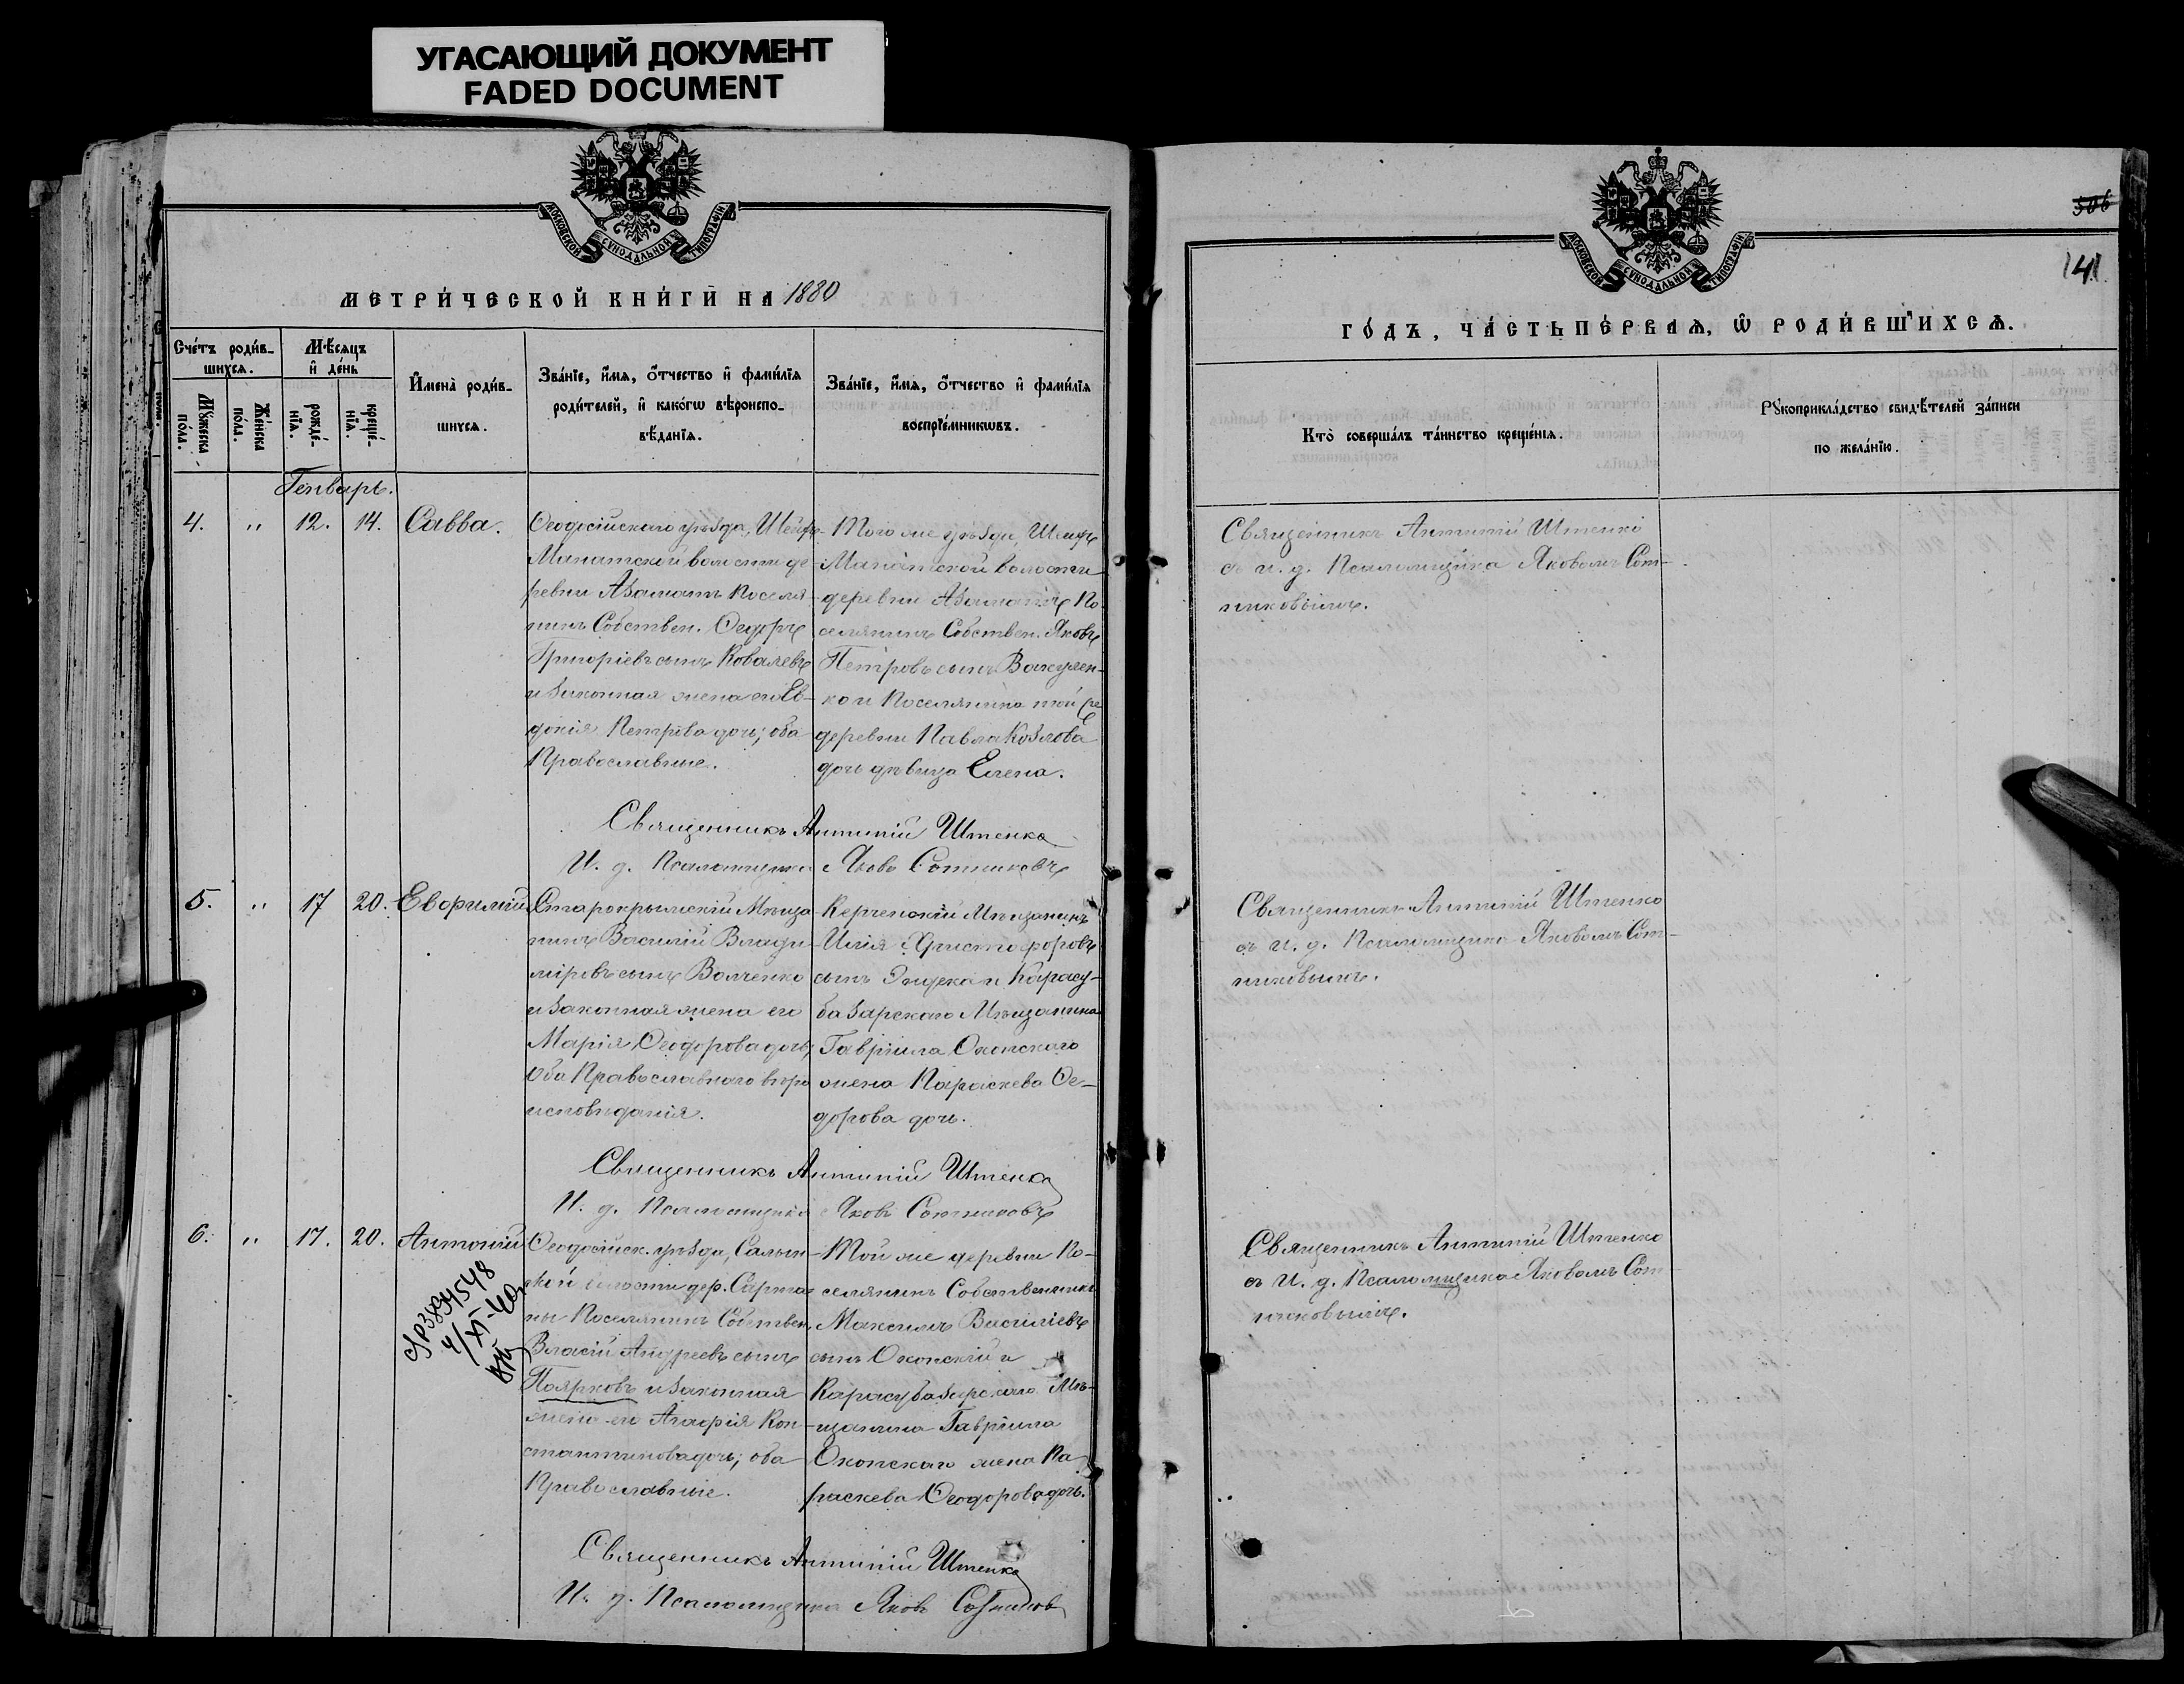 УГАСАЮЩИЙ ДОКУМЕНТ
FADED DOCUMENT
МОСКОВСКОЙ СѴНОДАЛЬНОЙ ТИПОГРАФІИ
МЕТРИ́ЧЕСКОЙ КНИ́ГИ НА 1880
Сче́тъ роди́в-
шихсѧ.
Мꙋ́жеска по́ла.
Же́нска по́ла.
Мѣ́сѧцъ
и҆ де́нь
рожде́-
нїѧ.
креще́-
нїѧ.
И҆мена̀ роди́в-
шихсѧ.
Зва́нїе, и҆́мѧ, ѻ҆́тчество и҆ фами́лїѧ
роди́телей, и҆ како́гѡ вѣроиспо-
вѣ́данїѧ.
Зва́нїе, и҆́мѧ, ѻ҆́тчество и҆ фами́лїѧ
воспрїе́мникѡвъ.
Генварь.
4. " 12. 14. Савва.
Ѳеодосійскаго уѣзда, Шейхъ-
Манатской волости де-
ревни Азаматъ Поселя-
нинъ Собствен. Ѳеодоръ
Григоріевъ сынъ Ковалевъ
и законная жена его Ев-
докія Петрова дочь; оба
Православные.
Того же уѣзда, Шейхъ
Манатской волости
деревни Азаматъ По-
селянинъ Собствен. Яковъ
Петровъ сынъ Вакулен-
ко и Поселянина той же
деревни Павла Козлова
дочь дѣвица Елена.
Священникъ Антипій Штенко
И. д. Псаломщика Яковъ Сотниковъ
5. " 17 20. Евфимій
Старокрымскій Мѣща-
нинъ Василій Влади-
міровъ сынъ Волченко
и законная жена его
Марія Ѳеодорова дочь,
Оба Православнаго вѣро
исповѣданія.
Керченскій Мѣщанинъ
Илія Христофоровъ
сынъ и Карасу-
базарскаго Мѣщанина
Гавріила Оконскаго
жена Параскева Ѳе-
дорова дочь.
Священникъ Антипій Штенко
И. д. Псаломщика Яковъ Сотниковъ
6. " 17. 20. Антоній
4/XI-40
Ѳеодосійск. уѣзда, Салын-
ской волости дер.
Поселянинъ Собствен.
Власій Андреевъ сынъ
Поярковъ и законная
жена его Агафія Кон-
стантинова дочь; оба
Православные.
Той же деревни По-
селянинъ Собственникъ
Максимъ Василіевъ
сынъ Оконскій и
Карасубазарскаго Мѣ-
щанина Гавріила
Оконскаго жена Па-
раскева Ѳеодорова дочь.
Священникъ Антипій Штенко
И. д. Псаломщика Яковъ Сотниковъ
МОСКОВСКОЙ СѴНОДАЛЬНОЙ ТИПОГРАФІИ
506
141
ГО́ДЪ, ЧА́СТЬ ПЕ́РВАѦ, Ѽ РОДИ́ВШИХСѦ.
Кто̀ соверша́лъ та́инство креще́нїѧ.
Рꙋкоприкла́дство свидѣ́телей за́писи
по жела́нїю.
Священникъ Антипій Штенко
съ и. д. Псаломщика Яковомъ Сот-
никовымъ.
Священникъ Антипій Штенко
съ и. д. Псаломщика Яковомъ Сот-
никовымъ.
Священникъ Антипій Штенко
съ и. д. Псаломщика Яковомъ Сот-
никовымъ.